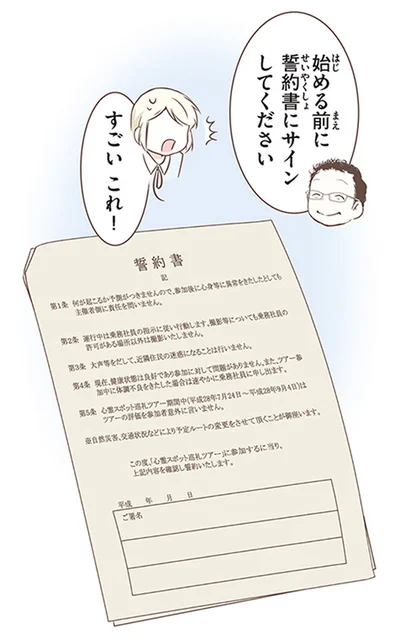 始める前に
誓約書にサイン
してください
すごい これ!
誓約書
記
第1条 何が起こるか予測がつきませんので、参加後に心身等に異常をきたしたとしても
主催者側に責任を問いません。
第2条 運行中は乗務社員の指示に従い行動します。撮影等についても乗務社員の
許可がある場所以外は撮影いたしません。
第3条 大声等をだして、近隣住民の迷惑になることは行いません。
第4条 現在、健康状態は良好であり参加に対して問題がありません。また、ツアー参
加中に体調不良をきたした場合は速やかに乗務社員に申し出ます。
第5条 心霊スポット巡礼ツアー期間中(平成28年7月24日〜平成28年9月4日)は
ツアーの評価を参加者意外に言いません。
※自然災害、交通状況などにより予定ルートの変更をさせて頂くことが御座います。
この度、「心霊スポット巡礼ツアー」に参加するに当り、
上記内容を確認し誓約いたします。
平成 年 月 日
ご署名